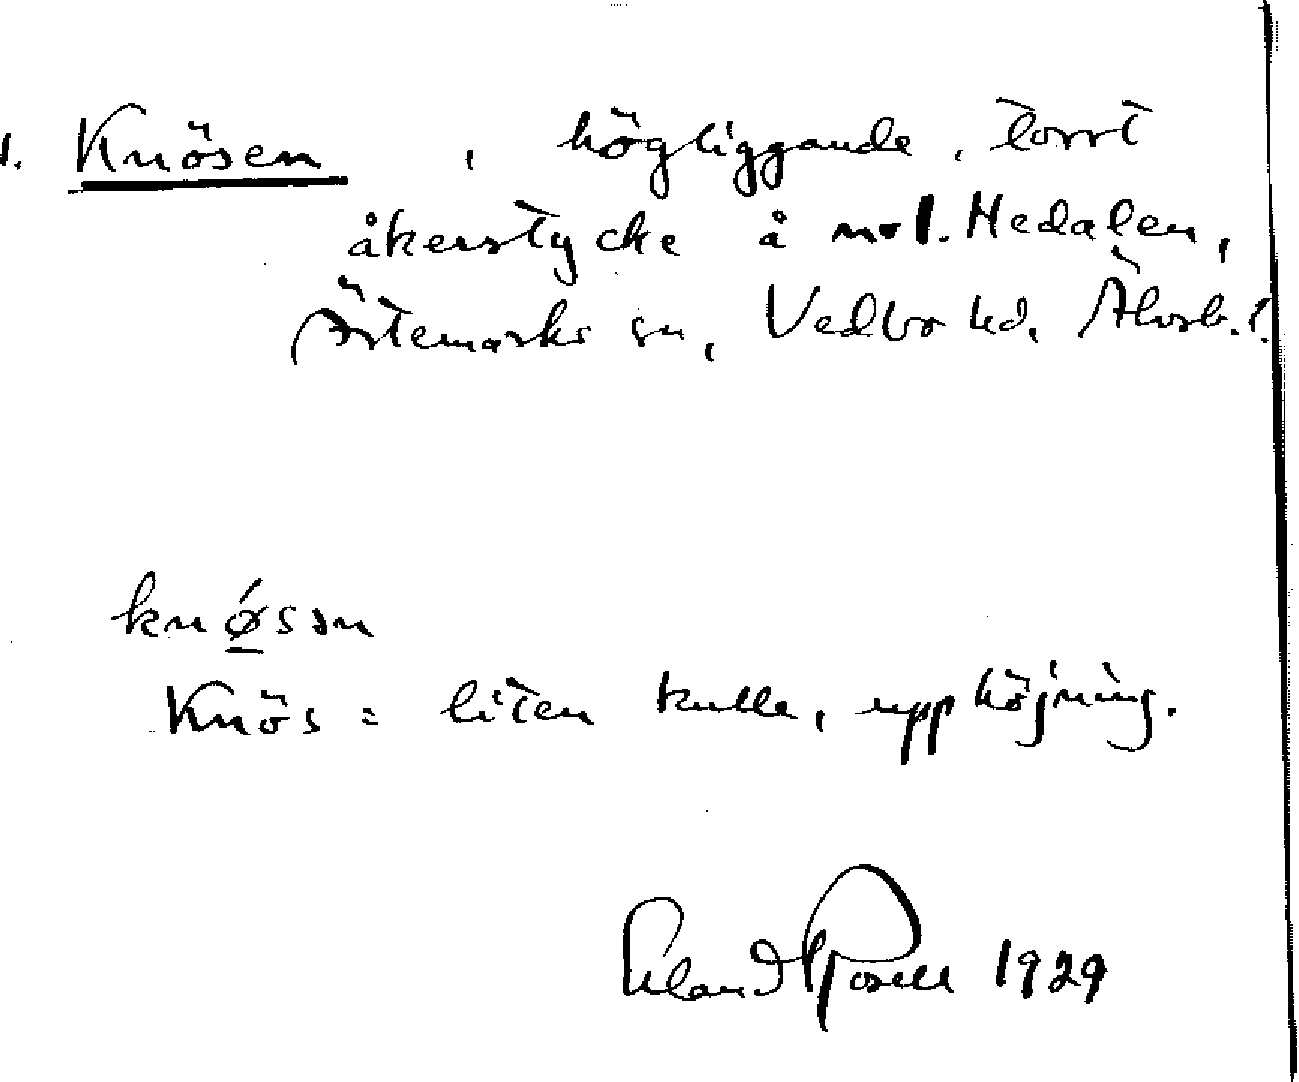 1. Knösen, högliggande, torrt
åkerstycke å nr 1. Hedalen,
Ärtemarks sn, Vedbo hd. Älvsb. l.
knǿ̲sən
Knös = liten kulle, upphöjning.
Erland Rosell 1929